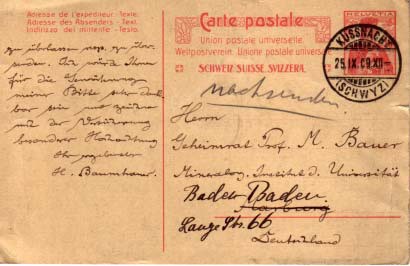 Adresse de l'expéditeur - Texte.
Adresse des Absenders - Text.
Indirizzo del mittente - Testo.
zu überlassen resp. zu über-
senden. Ich würde Ihnen
für die Gewährung
meiner Bitte sehr dank-
bar sein und zeichne
mit der Versicherung
besonderer Hochachtung
Ihr ergebenster
H. Baumhauer.
Carte postale
Union postale universelle.
Weltpostverein. Unione postale univers
SCHWEIZ. SUISSE. SVIZZERA.
HELVETIA
KÜSSNACHT
25.IX.09.XII-
(SCHWYZ)
nachsenden.
Herrn
Geheimrat Prof. M. Bauer
Mineralog. Institut d. Universität
Baden Baden.
Marburg
Lange Str. 66
Deutschland